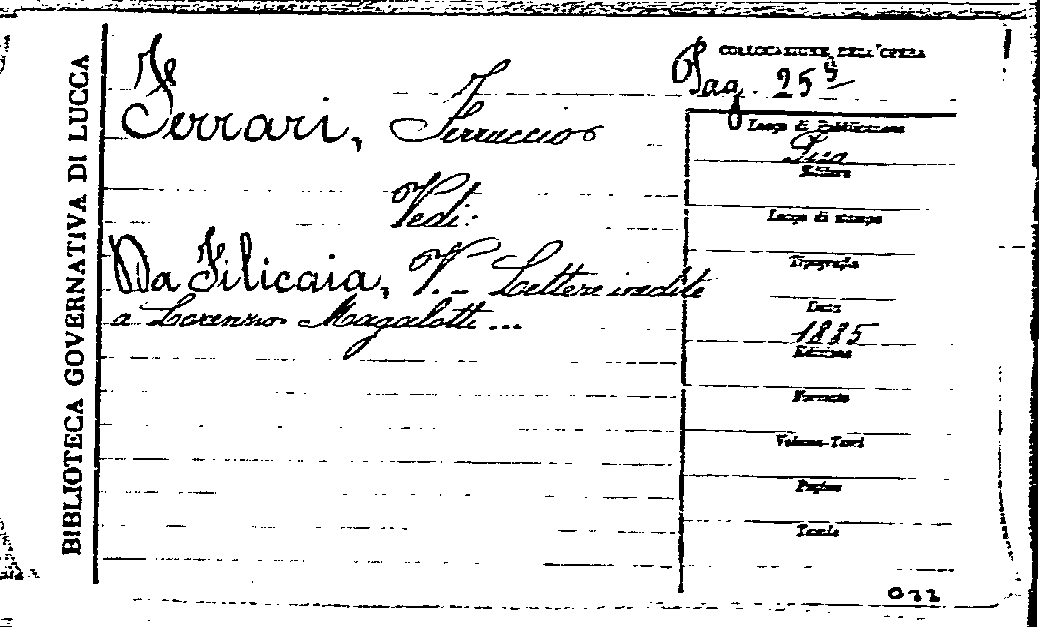 BIBLIOTECA GOVERNATIVA DI LUCCA
COLLOCAZIONE DELL'OPERA
Pag. 25⁵
Ferrari, Ferruccio
Vedi:
Da Filicaia, V. - Lettere inedite
a Lorenzo Magalotti...
Luogo di Pubblicazione
Pisa
Editore
Luogo di stampa
Tipografia
Data
1885
Edizione
Formato
Volume-Tomi
Pagine
Tavole
022